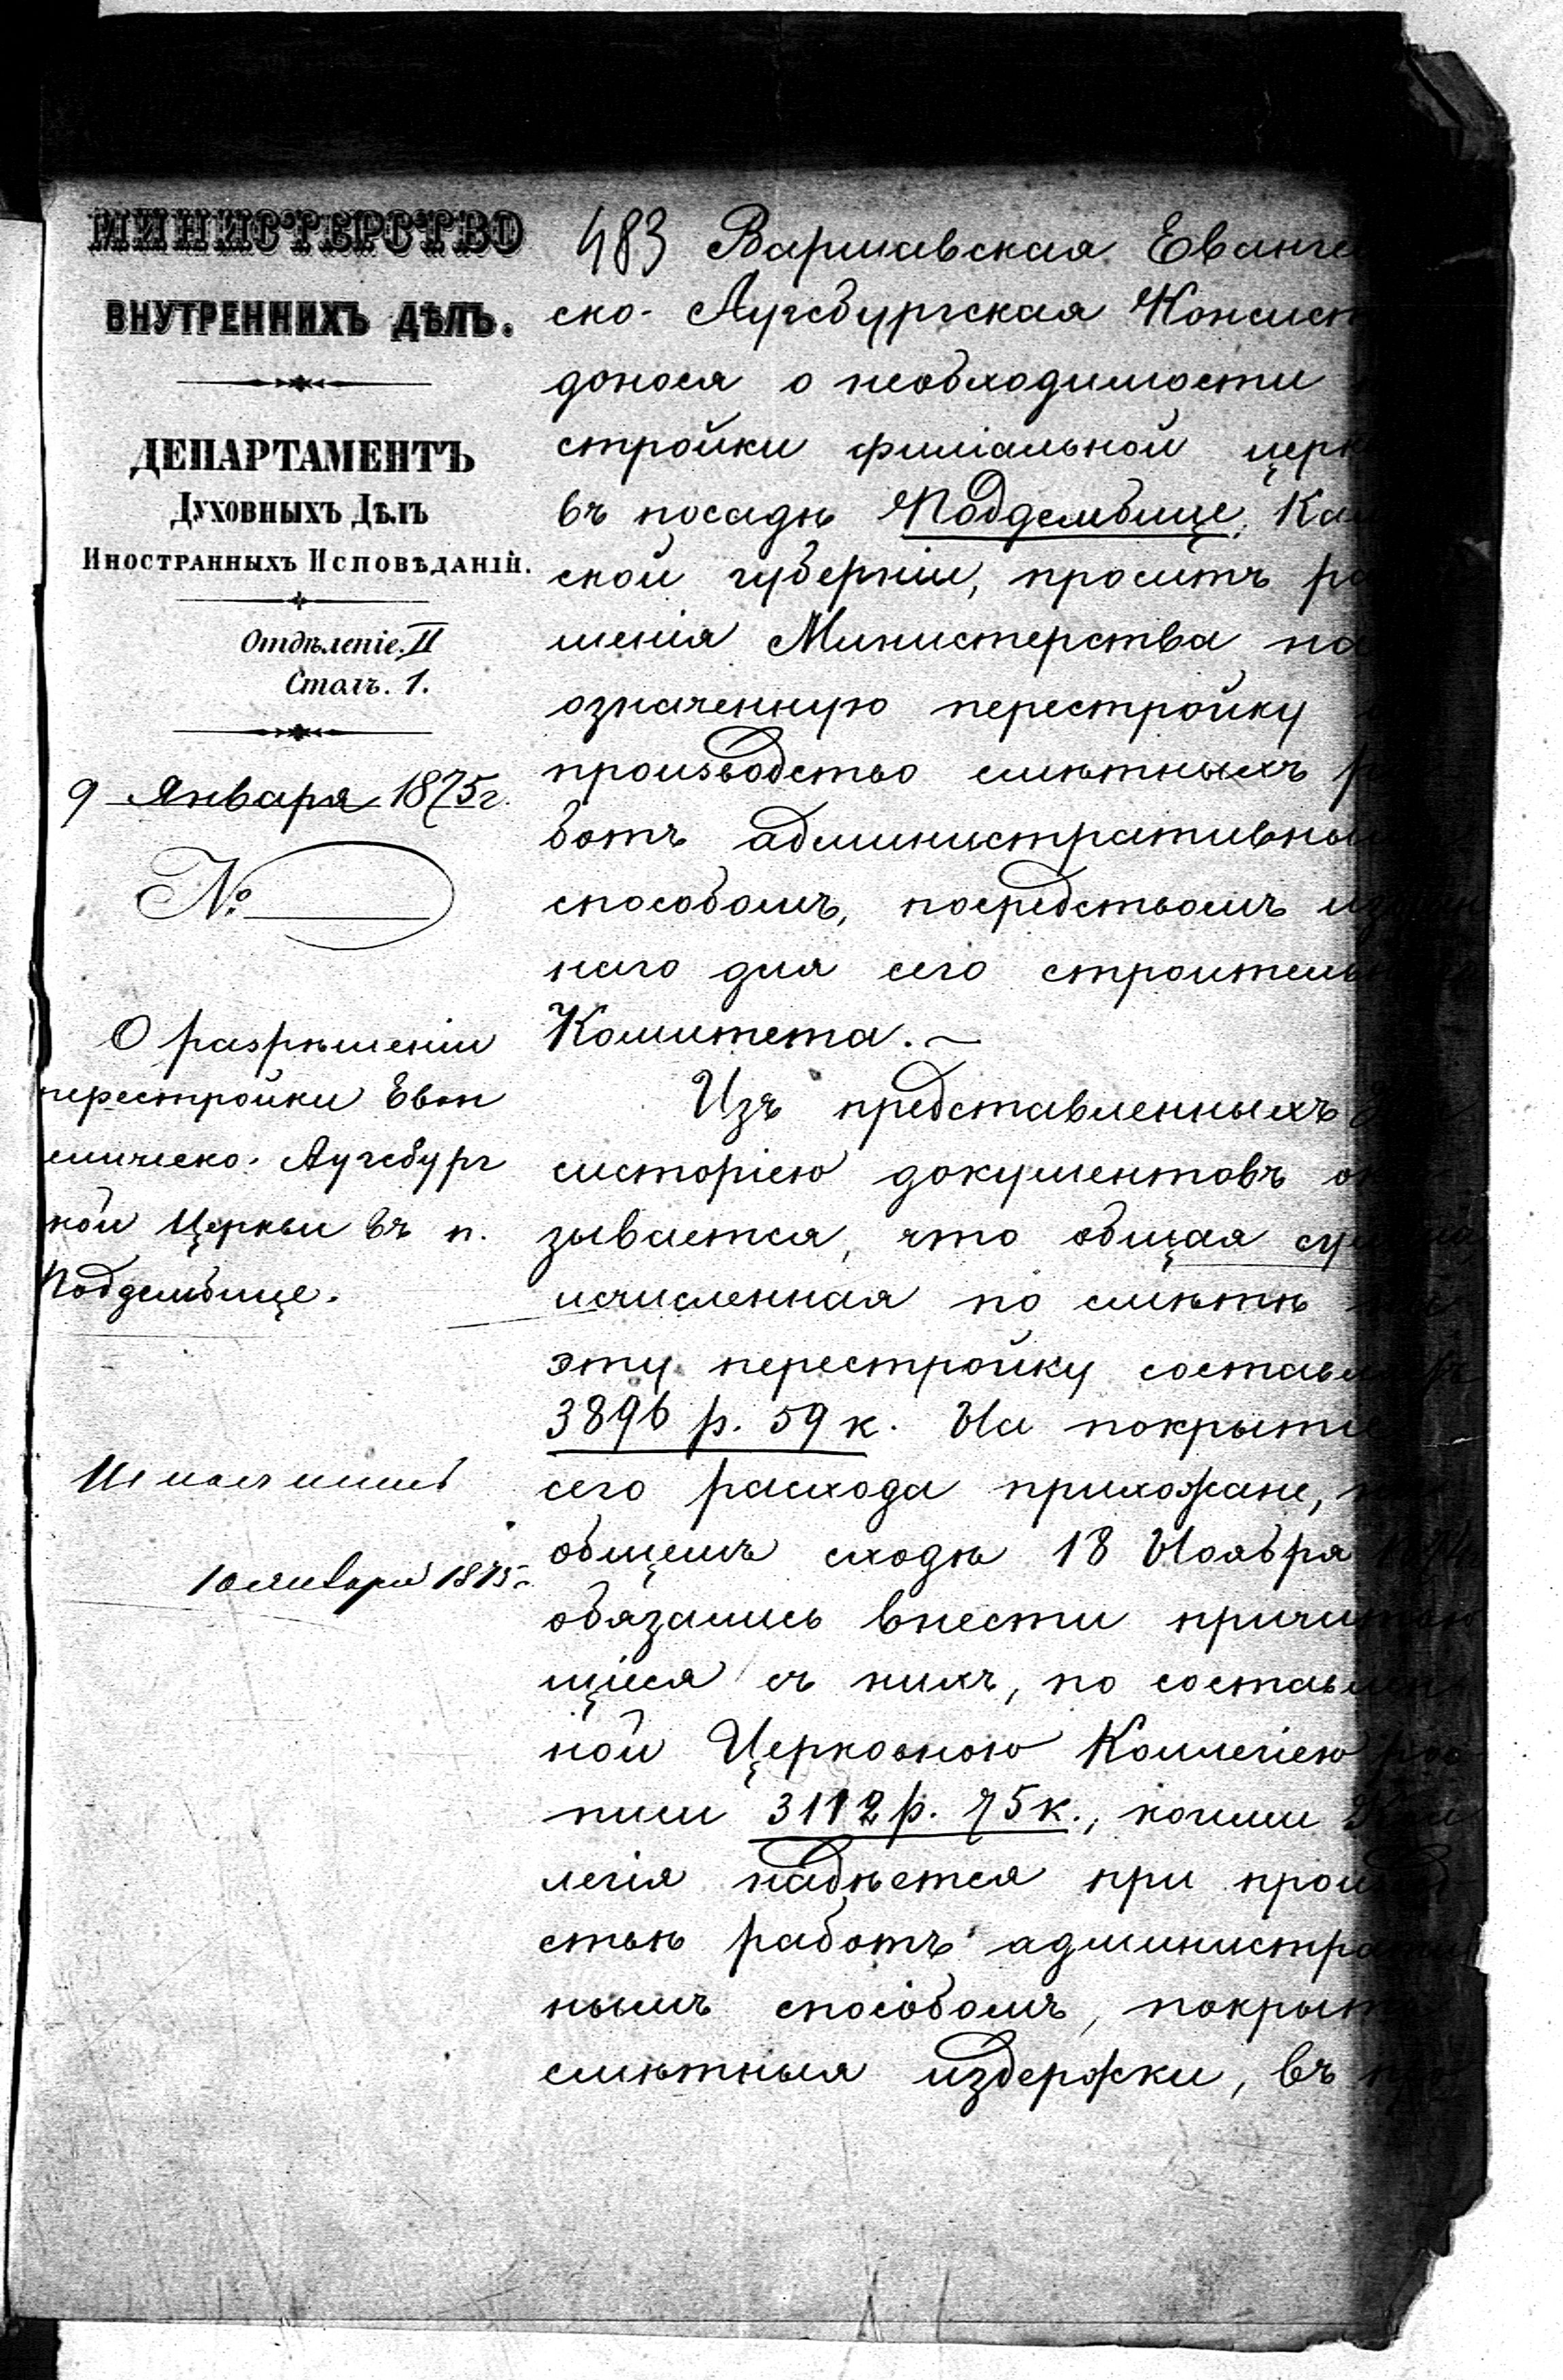 МИНИСТЕРСТВО
ВНУТРЕННИХЪ ДѢЛЪ.
ДЕПАРТАМЕНТЪ
Духовныхъ Дѣлъ
Иностранныхъ Исповѣданій.
Отдѣленіе. II
Столъ. 1.
9 Января 1875 г.
№
О разрѣшеніи
перестройки Еван
лическо-Аугсбург
кой Церкви въ п.
Поддембице.
10 января 1875
483 Варшавская Еванге
ско-Аугсбургская Консист
донося о необходимости
стройки филіальной церк
въ посадѣ Поддембице, Кал
ской губерніи, проситъ ра
шенія Министерства на
означенную перестройку
производство смѣтныхъ р
ботъ административны
способомъ, посредствомъ
наго для сего строительн
Комитета. —
Изъ представленныхъ
систоріею документовъ ок
зывается, что общая сумма
исчисленная по смѣтѣ
эту перестройку составля
3896 р. 59 к. На покрытіе
сего расхода прихожане,
общемъ сходѣ 18 Ноября 1874
обязались внести причитаю
щіеся съ нихъ, по составлен
ной Церковною Коллегіею рос
писи 3112 р. 75 к., коими Кол
легія надѣется при производ
ствѣ работъ администрати
нымъ способомъ, покрыт
смѣтныя издержки, въ